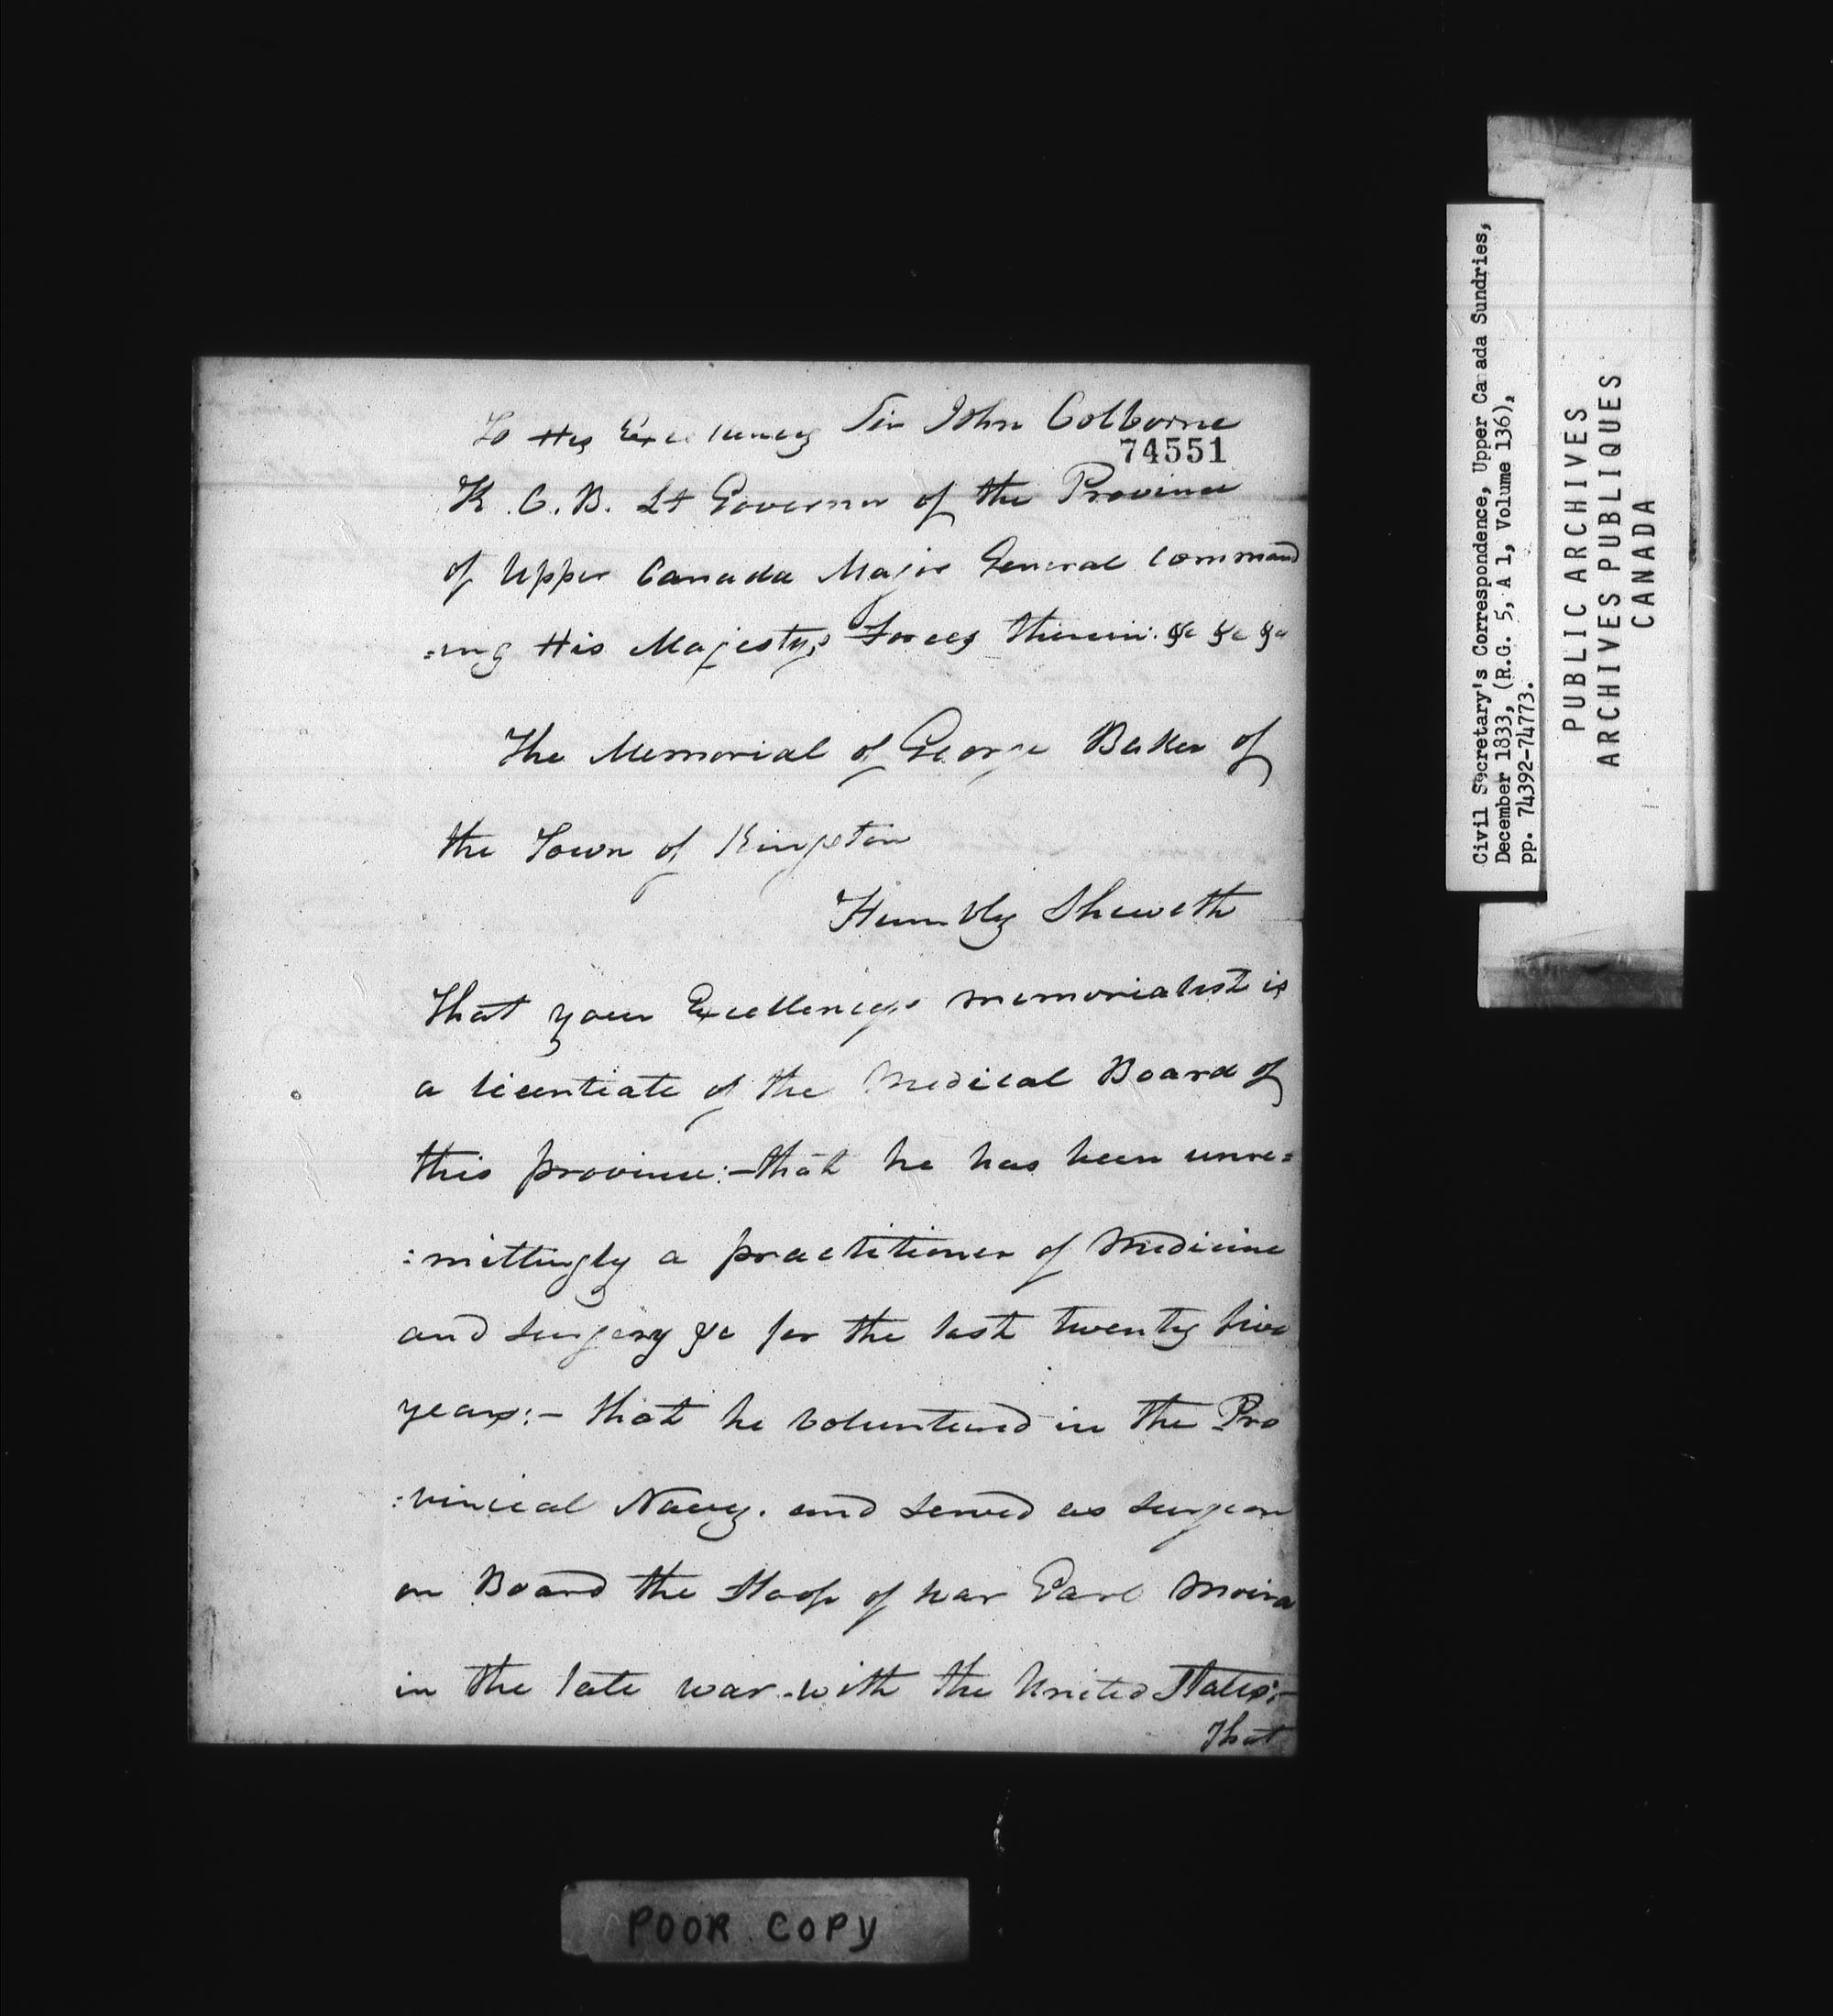 To His Excellency Sir John Colborne
74551
K. C. B. Lt Governor of the Province
of Upper Canada Major General Command
:ing His Majestys Forces therein: &c &c &c
The Memorial of George Baker of
the Town of Kingston
Humbly Sheweth
That your Excellencys memorialist is
a licentiate of the Medical Board of
this province:- that he has been unre=
:mittingly a practitioner of Medicine
and surgery &c for the last twenty five
years:- that he volunteered in the Pro
:vincial Navy. and served as surgeon
on Board the Sloop of war Earl Moira
in the late war with the United States:-
That
Civil Secretary's Correspondence, Upper Canada Sundries,
December 1833, (R.G. 5, A 1, Volume 136),
pp. 74392-74773.
PUBLIC ARCHIVES
ARCHIVES PUBLIQUES
CANADA
POOR COPY